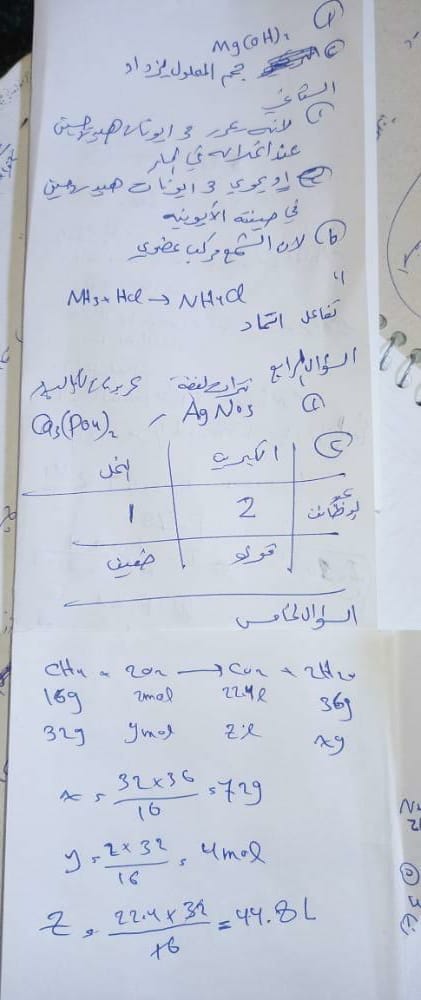 ①
Mg(OH)₂
② حجم المحلول يزداد
الثاني
① لانه يحرر 3 ايونات هيدروجين
عند انحلاله في الماء
او يحوي 3 ايونات هيدروجين
في صيغته الأيونية
ⓑ لان الشمع مركب عضوي
NH₃ + HCl → NH₄Cl
تفاعل اتحاد
السؤال الرابع
① نترات الفضة
Ca₃(PO₄)₂ , AgNO₃
②
الكبريت الخل
عدد الوظائف 2 1
قوي ضعيف
السؤال الخامس
CH₄ + 2O₂ → CO₂ + 2H₂O
16g 2mol 22.4l 36g
32g ymol z l xg
x = 32×36/16 = 72g
y = 2×32/16 = 4mol
Z = 22.4×32/16 = 44.8L